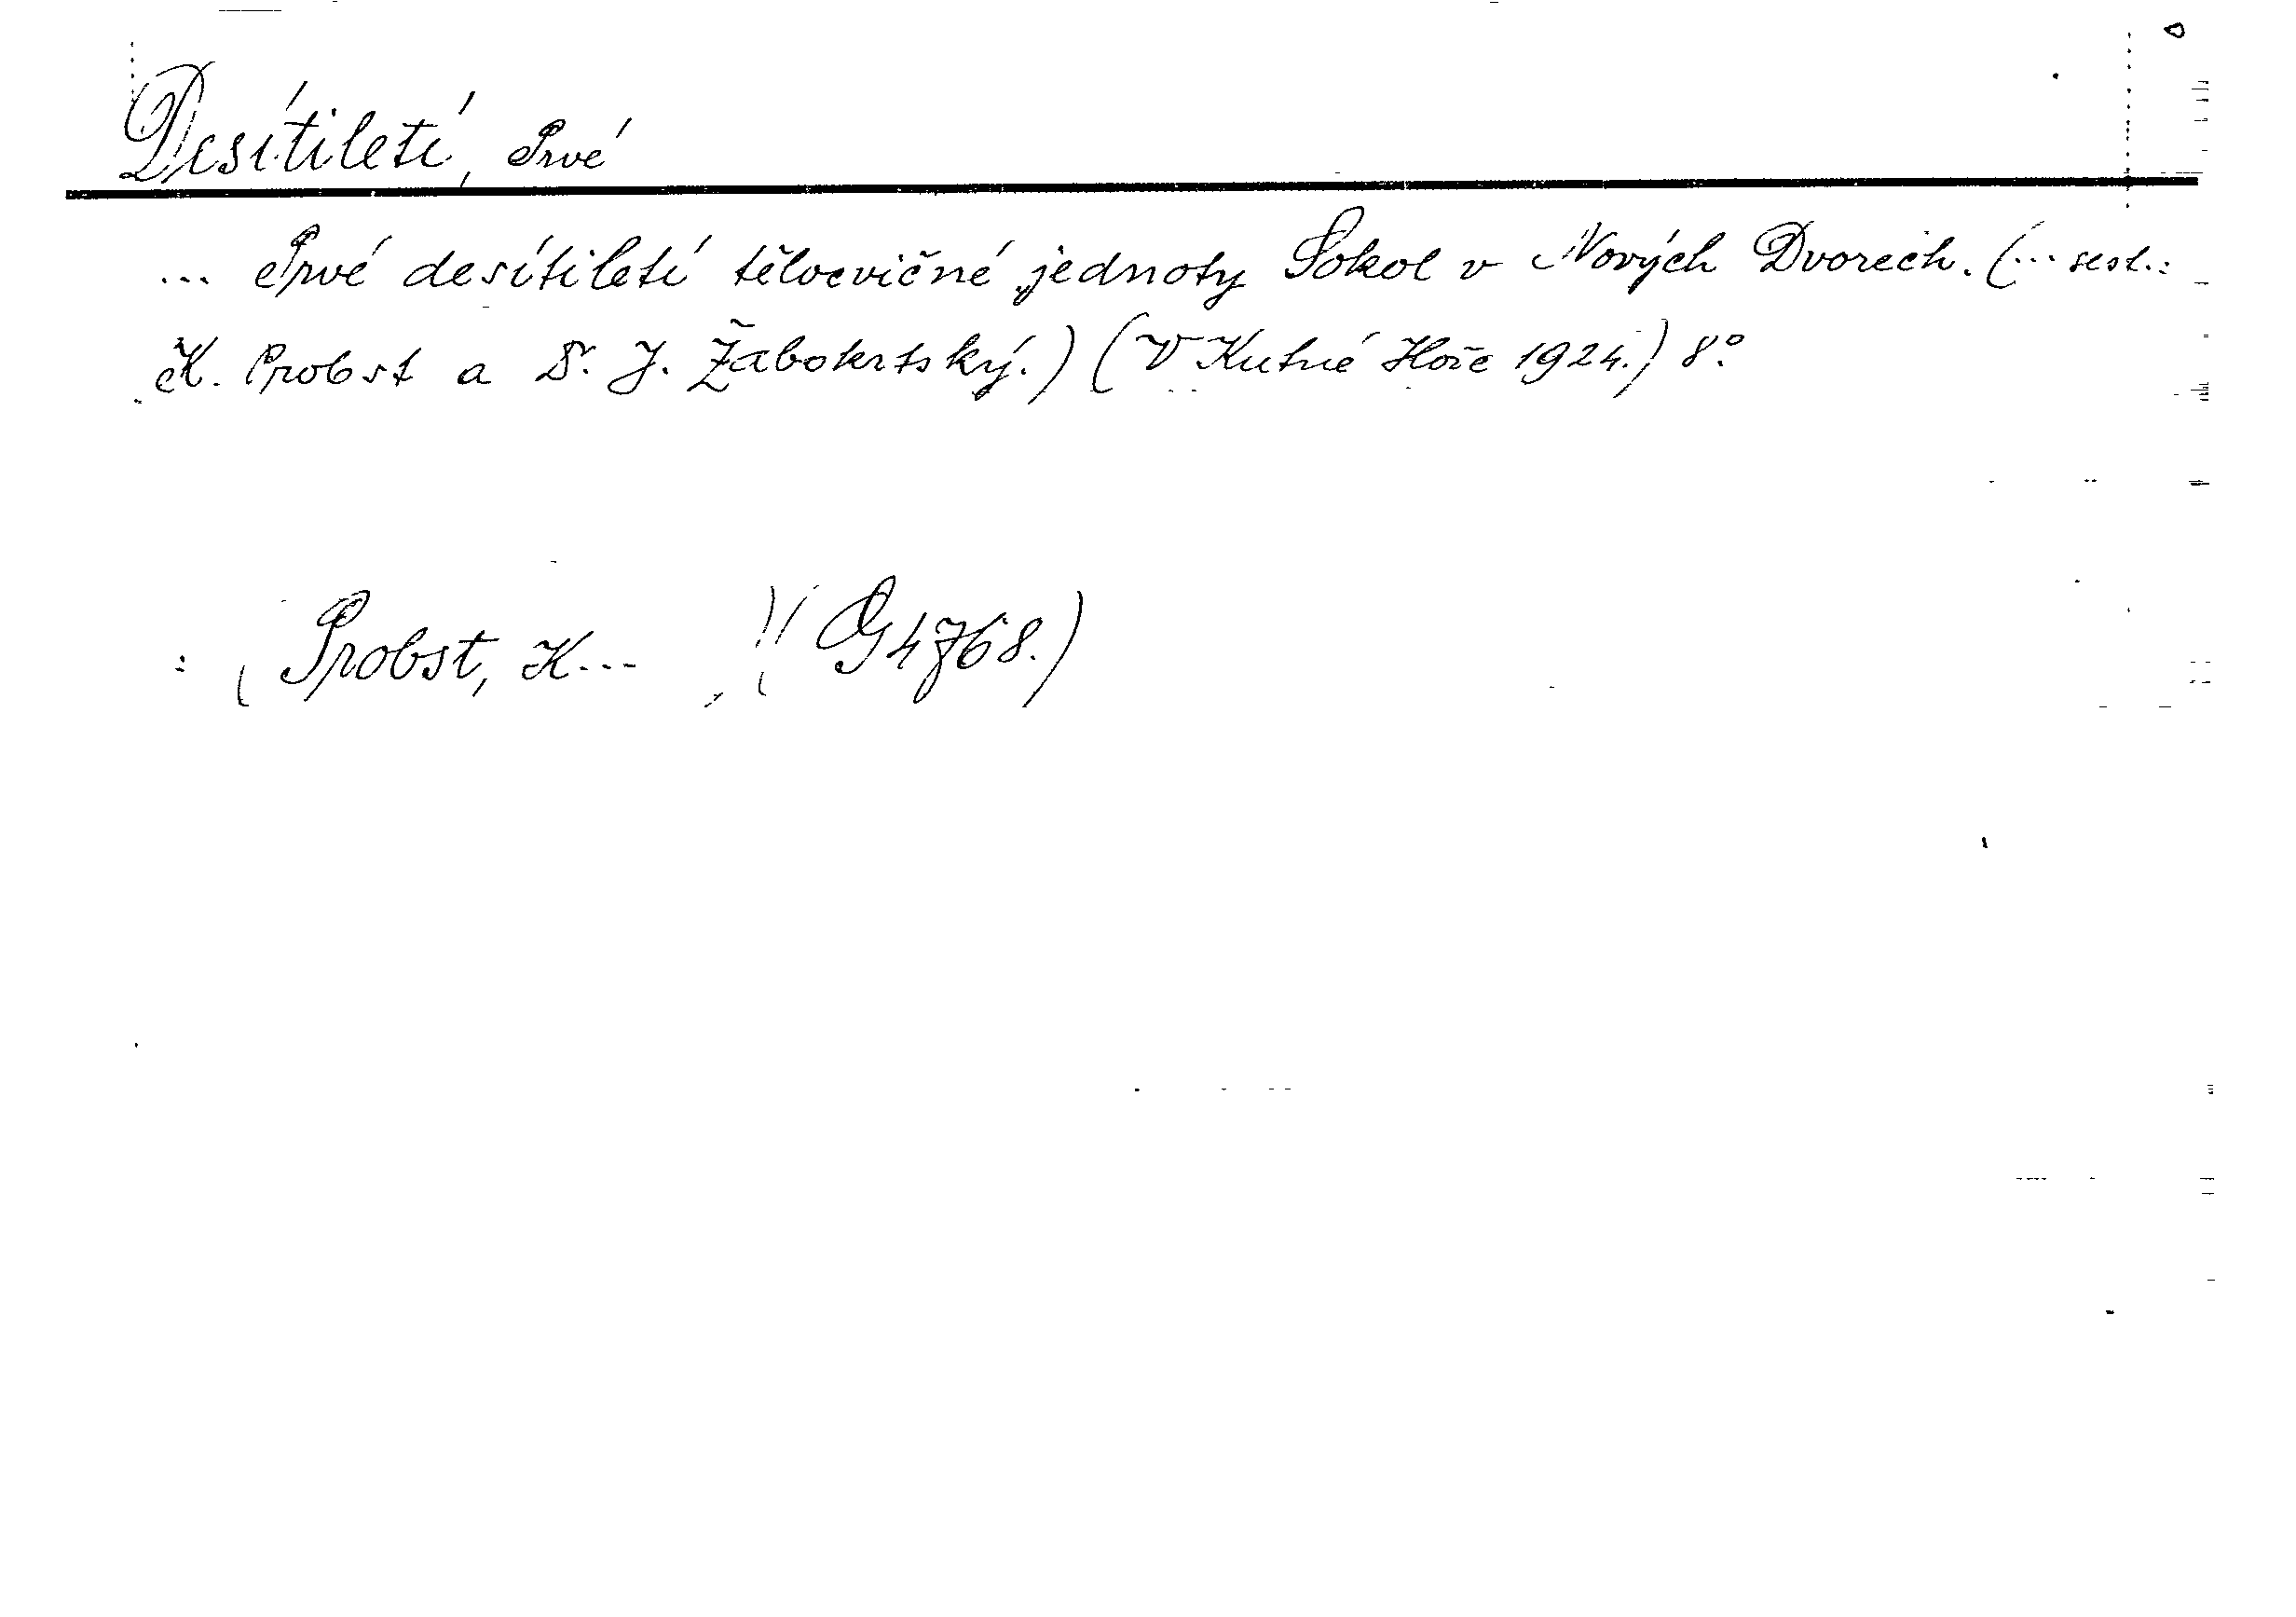 Desítiletí, Prvé
... Prvé desítiletí tělocvičné jednoty Sokol v Nových Dvorech. (... sest.:
K. Probst a Dr. J. Žabokrtský.) (V Kutné Hoře 1924.) 8°.
: (Probst, K... , !( G 4768.)